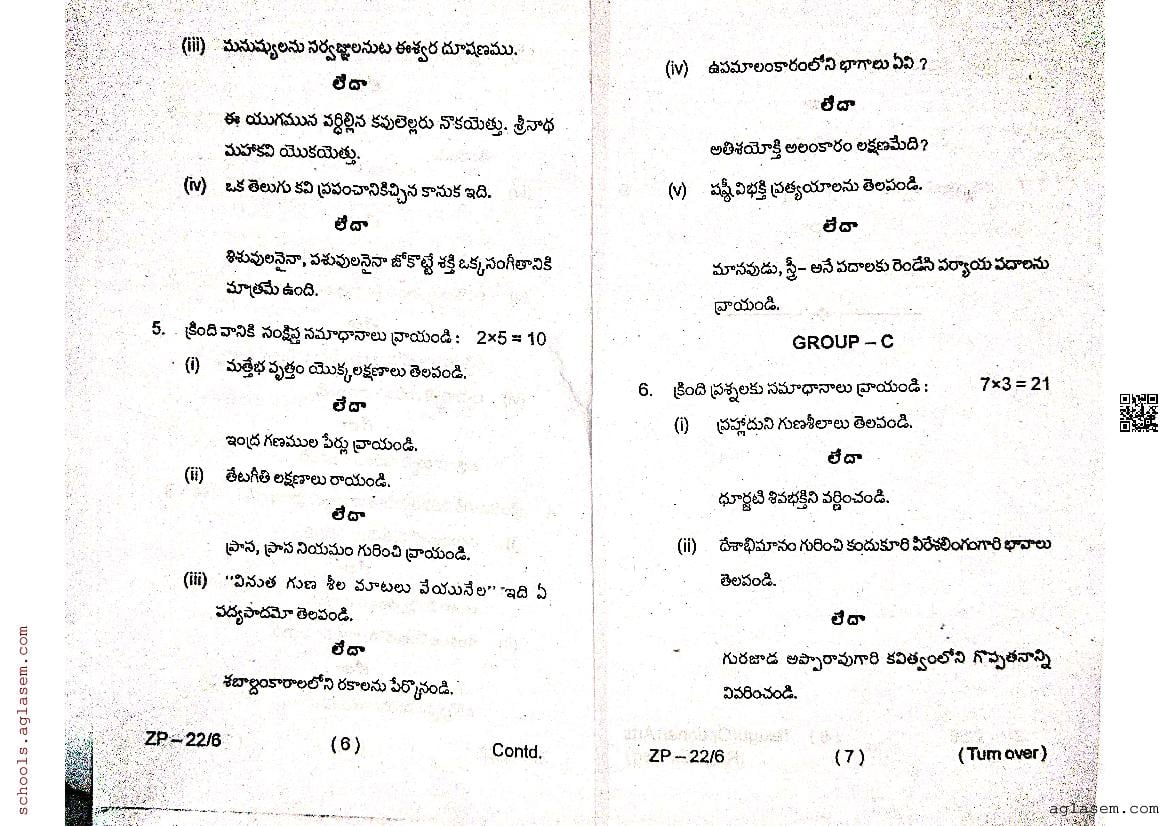 (iii) మనుష్యులను సర్వజ్ఞులనుట ఈశ్వర దూషణము.
లేదా
ఈ యుగమున వర్ధిల్లిన కవులెల్లరు నొకయెత్తు. శ్రీనాథ
మహాకవి యొకయెత్తు.
(iv) ఒక తెలుగు కవి ప్రపంచానికిచ్చిన కానుక ఇది.
లేదా
శిశువులనైనా, పశువులనైనా జోకొట్టే శక్తి ఒక్క సంగీతానికి
మాత్రమే ఉంది.
5. క్రింది వానికి సంక్షిప్త సమాధానాలు వ్రాయండి : 2×5 = 10
(i) మత్తేభ వృత్తం యొక్క లక్షణాలు తెలపండి.
లేదా
ఇంద్ర గణముల పేర్లు వ్రాయండి.
(ii) తేటగీతి లక్షణాలు రాయండి.
లేదా
ప్రాస, ప్రాస నియమం గురించి వ్రాయండి.
(iii) "వినుత గుణ శీల మాటలు వేయునేల" ఇది ఏ
పద్యపాదమో తెలపండి.
లేదా
శబ్దాలంకారాలలోని రకాలను పేర్కొనండి.
ZP – 22/6 (6) Contd.
(iv) ఉపమాలంకారంలోని భాగాలు ఏవి ?
లేదా
అతిశయోక్తి అలంకారం లక్షణమేది?
(v) షష్ఠీ విభక్తి ప్రత్యయాలను తెలపండి.
లేదా
మానవుడు, స్త్రీ– అనే పదాలకు రెండేసి పర్యాయ పదాలను
వ్రాయండి.
GROUP – C
6. క్రింది ప్రశ్నలకు సమాధానాలు వ్రాయండి : 7×3 = 21
(i) ప్రహ్లాదుని గుణశీలాలు తెలపండి.
లేదా
ధూర్జటి శివభక్తిని వర్ణించండి.
(ii) దేశాభిమానం గురించి కందుకూరి వీరేశలింగంగారి భావాలు
తెలపండి.
లేదా
గురజాడ అప్పారావుగారి కవిత్వంలోని గొప్పతనాన్ని
వివరించండి.
ZP – 22/6 (7) (Turn over)
schools.aglasem.com
aglasem.com